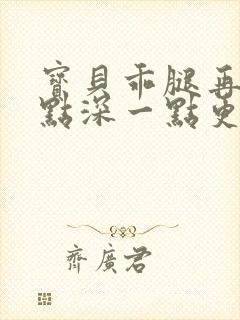 寶貝乖腿再
點深一點更
齊廣君